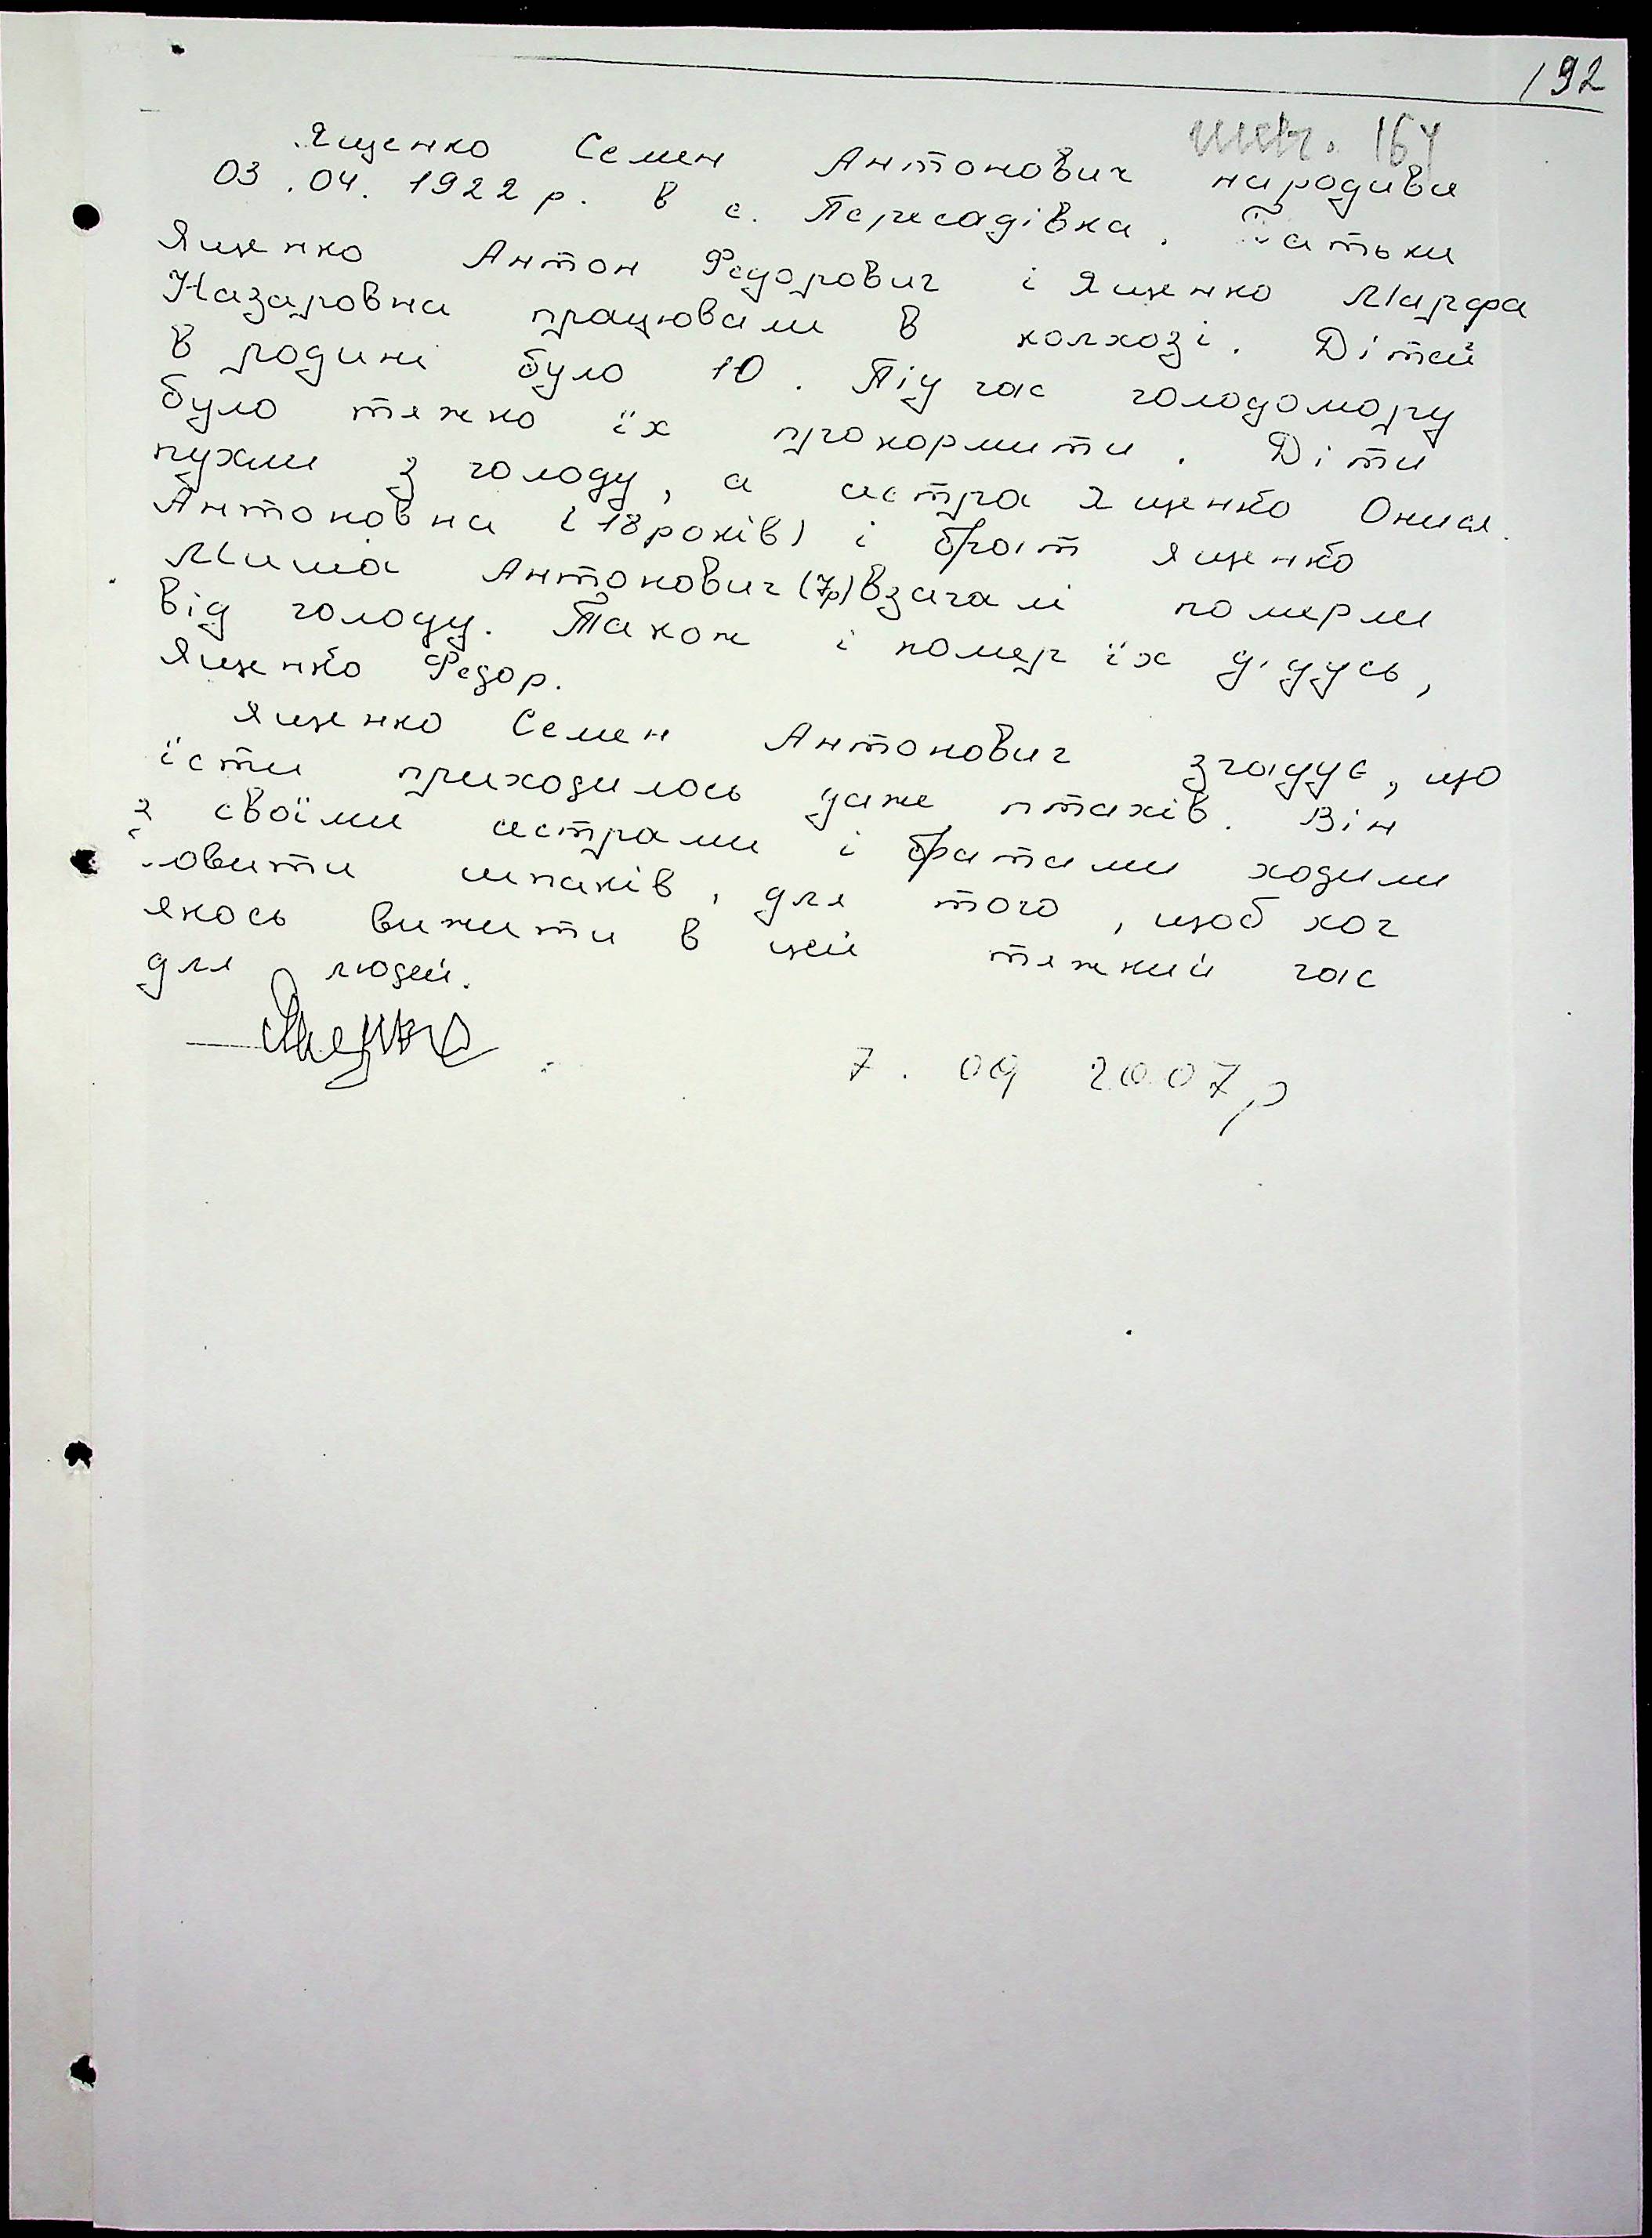 192
Ященко Семен Антонович народивс
03.04.1922 р. в с. Пересадівка. Батьки
Ященко Антон Федорович і Ященко Марфа
Назаровна працювали в колхозі. Дітей
в родині було 10. Під час голодомору
було тяжко їх прокормити. Діти
пухли з голоду, а сестра Ященко Онися
Антоновна (18 років) і брат Ященко
Миша Антонович (7р) взагалі померли
від голоду. Також і помер їх дідусь,
Ященко Федор.
Ященко Семен Антонович згадує, що
їсти приходилось даже птахів. Він
з своїми сестрами і братами ходили
ловити шпаків, для того, щоб хоч
якось вижити в цей тяжкий час
для людей.
7.09 2007р